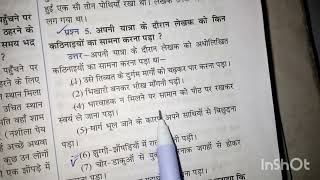 हुई एक सी तीन पोथियाँ रखी था। लेखक उन
लग गया था।
प्रश्न 5. अपनी यात्रा के दौरान लेखक को किन
कठिनाइयों का सामना करना पड़ा ?
उत्तर—अपनी यात्रा के दौरान लेखक को अधोलिखित
कठिनाइयों का सामना करना पड़ा था—
(1) उसे तिब्बत के दुर्गम मार्गों को चढ़कर पार करना पड़ा।
(2) भिखारी बनकर भीख माँगनी पड़ी।
(4) भारवाहक न मिलने पर सामान को पीठ पर रखकर
स्वयं ले जाना पड़ा।
(5) मार्ग भूल जाने के कारण अपने साथियों से बिछुड़ना
पड़ा।
(6) झुग्गी-झोंपड़ियों में
(7) चोर-डाकुओं से जगहों से होकर
पहुँचने पर
ठहरने के
समय भद्र
?
पहुँचने पर
ने के लिए
स्थान न
उचित स्थान
थे वहाँ शाम
(नशीला पेय
हैं अच्छे अथवा
कुछ उन लोगों
में एक अच्छे
के झोंपड़े में
InShOt